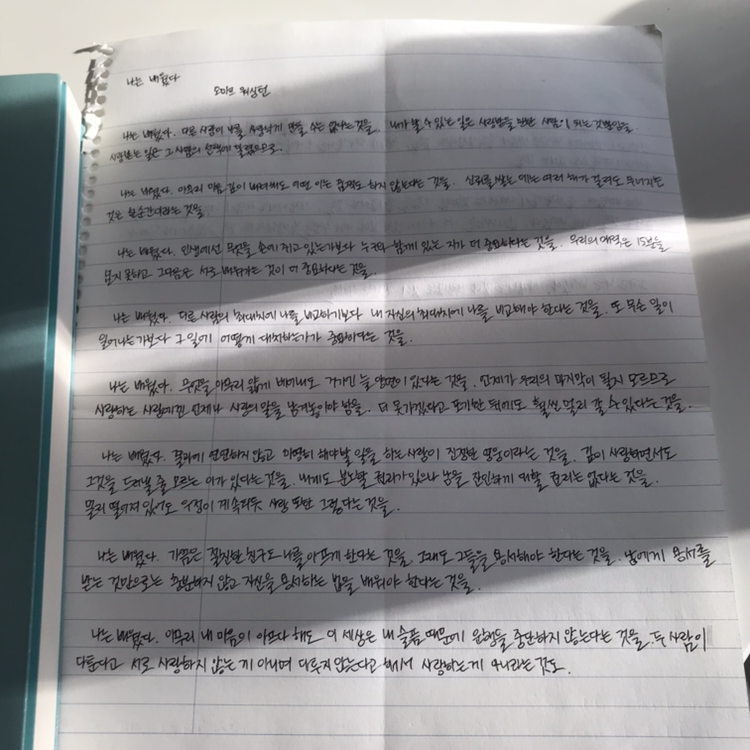 나는 배웠다
오마르 워싱턴
나는 배웠다. 다른 사람이 나를 사랑하게 만들 수는 없다는 것을. 내가 할 수 있는 일은 사랑받을 만한 사람이 되는 것뿐임을
사랑받는 일은 그 사람의 선택에 달렸으므로.
나는 배웠다. 아무리 마음 깊이 배려해도 어떤 이는 꿈쩍도 하지 않는다는 것을. 신뢰를 쌓는 데는 여러 해가 걸려도 무너지는
것은 한순간이라는 것을
나는 배웠다. 인생에선 무엇을 손에 쥐고 있는가보다 누구와 함께 있는 지가 더 중요하다는 것을. 우리의 매력은 15분을
넘지 못하고 그다음은 서로 배워가는 것이 더 중요하다는 것을.
나는 배웠다. 다른 사람의 최대치에 나를 비교하기보다 내 자신의 최대치에 나를 비교해야 한다는 것을. 또 무슨 일이
일어나는가보다 그 일에 어떻게 대처하는가가 중요하다는 것을.
나는 배웠다. 무엇을 아무리 얇게 베어내도 거기엔 늘 양면이 있다는 것을. 언제가 우리의 마지막이 될지 모르므로
사랑하는 사람에겐 언제나 사랑의 말을 남겨놓아야 함을. 더 못 가겠다고 포기한 뒤에도 훨씬 멀리 갈 수 있다는 것을.
나는 배웠다. 결과에 연연하지 않고 마땅히 해야할 일을 하는 사람이 진정한 영웅이라는 것을. 깊이 사랑하면서도
그것을 드러낼 줄 모르는 이가 있다는 것을. 내게도 분노할 권리가 있으나 남을 잔인하게 대할 권리는 없다는 것을.
멀리 떨어져 있어도 우정이 계속되듯 사랑 또한 그렇다는 것을.
나는 배웠다. 가끔은 절친한 친구도 나를 아프게 한다는 것을. 그래도 그들을 용서해야 한다는 것을. 남에게 용서를
받는 것만으로는 충분하지 않고 자신을 용서하는 법을 배워야 한다는 것을.
나는 배웠다. 아무리 내 마음이 아프다 해도 이 세상은 내 슬픔 때문에 운행을 중단하지 않는다는 것을. 두 사람이
다툰다고 서로 사랑하지 않는 게 아니며 다투지 않는다고 해서 사랑하는 게 아니라는 것도.